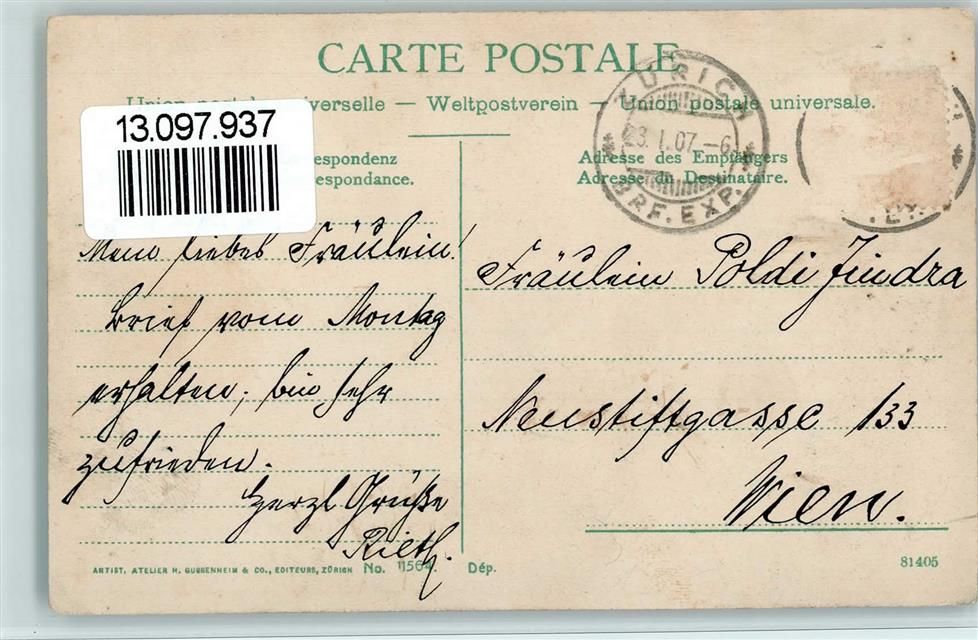 CARTE POSTALE
Union postale universelle — Weltpostverein — Union postale universale.
13.097.937
respondenz
respondance.
Adresse des Empfängers
Adresse du Destinataire.
ZÜRICH
23. I. 07. – 6
BRF. EXP.
Mein liebes Fräulein!
Brief vom Montag
erhalten, bin sehr
zufrieden.
Herzl Grüße
Fräulein Poldi Jindra
Neustiftgasse 133
Wien.
ARTIST. ATELIER H. GUGGENHEIM & CO., EDITEURS, ZÜRICH No. 11564. Dép.
81405